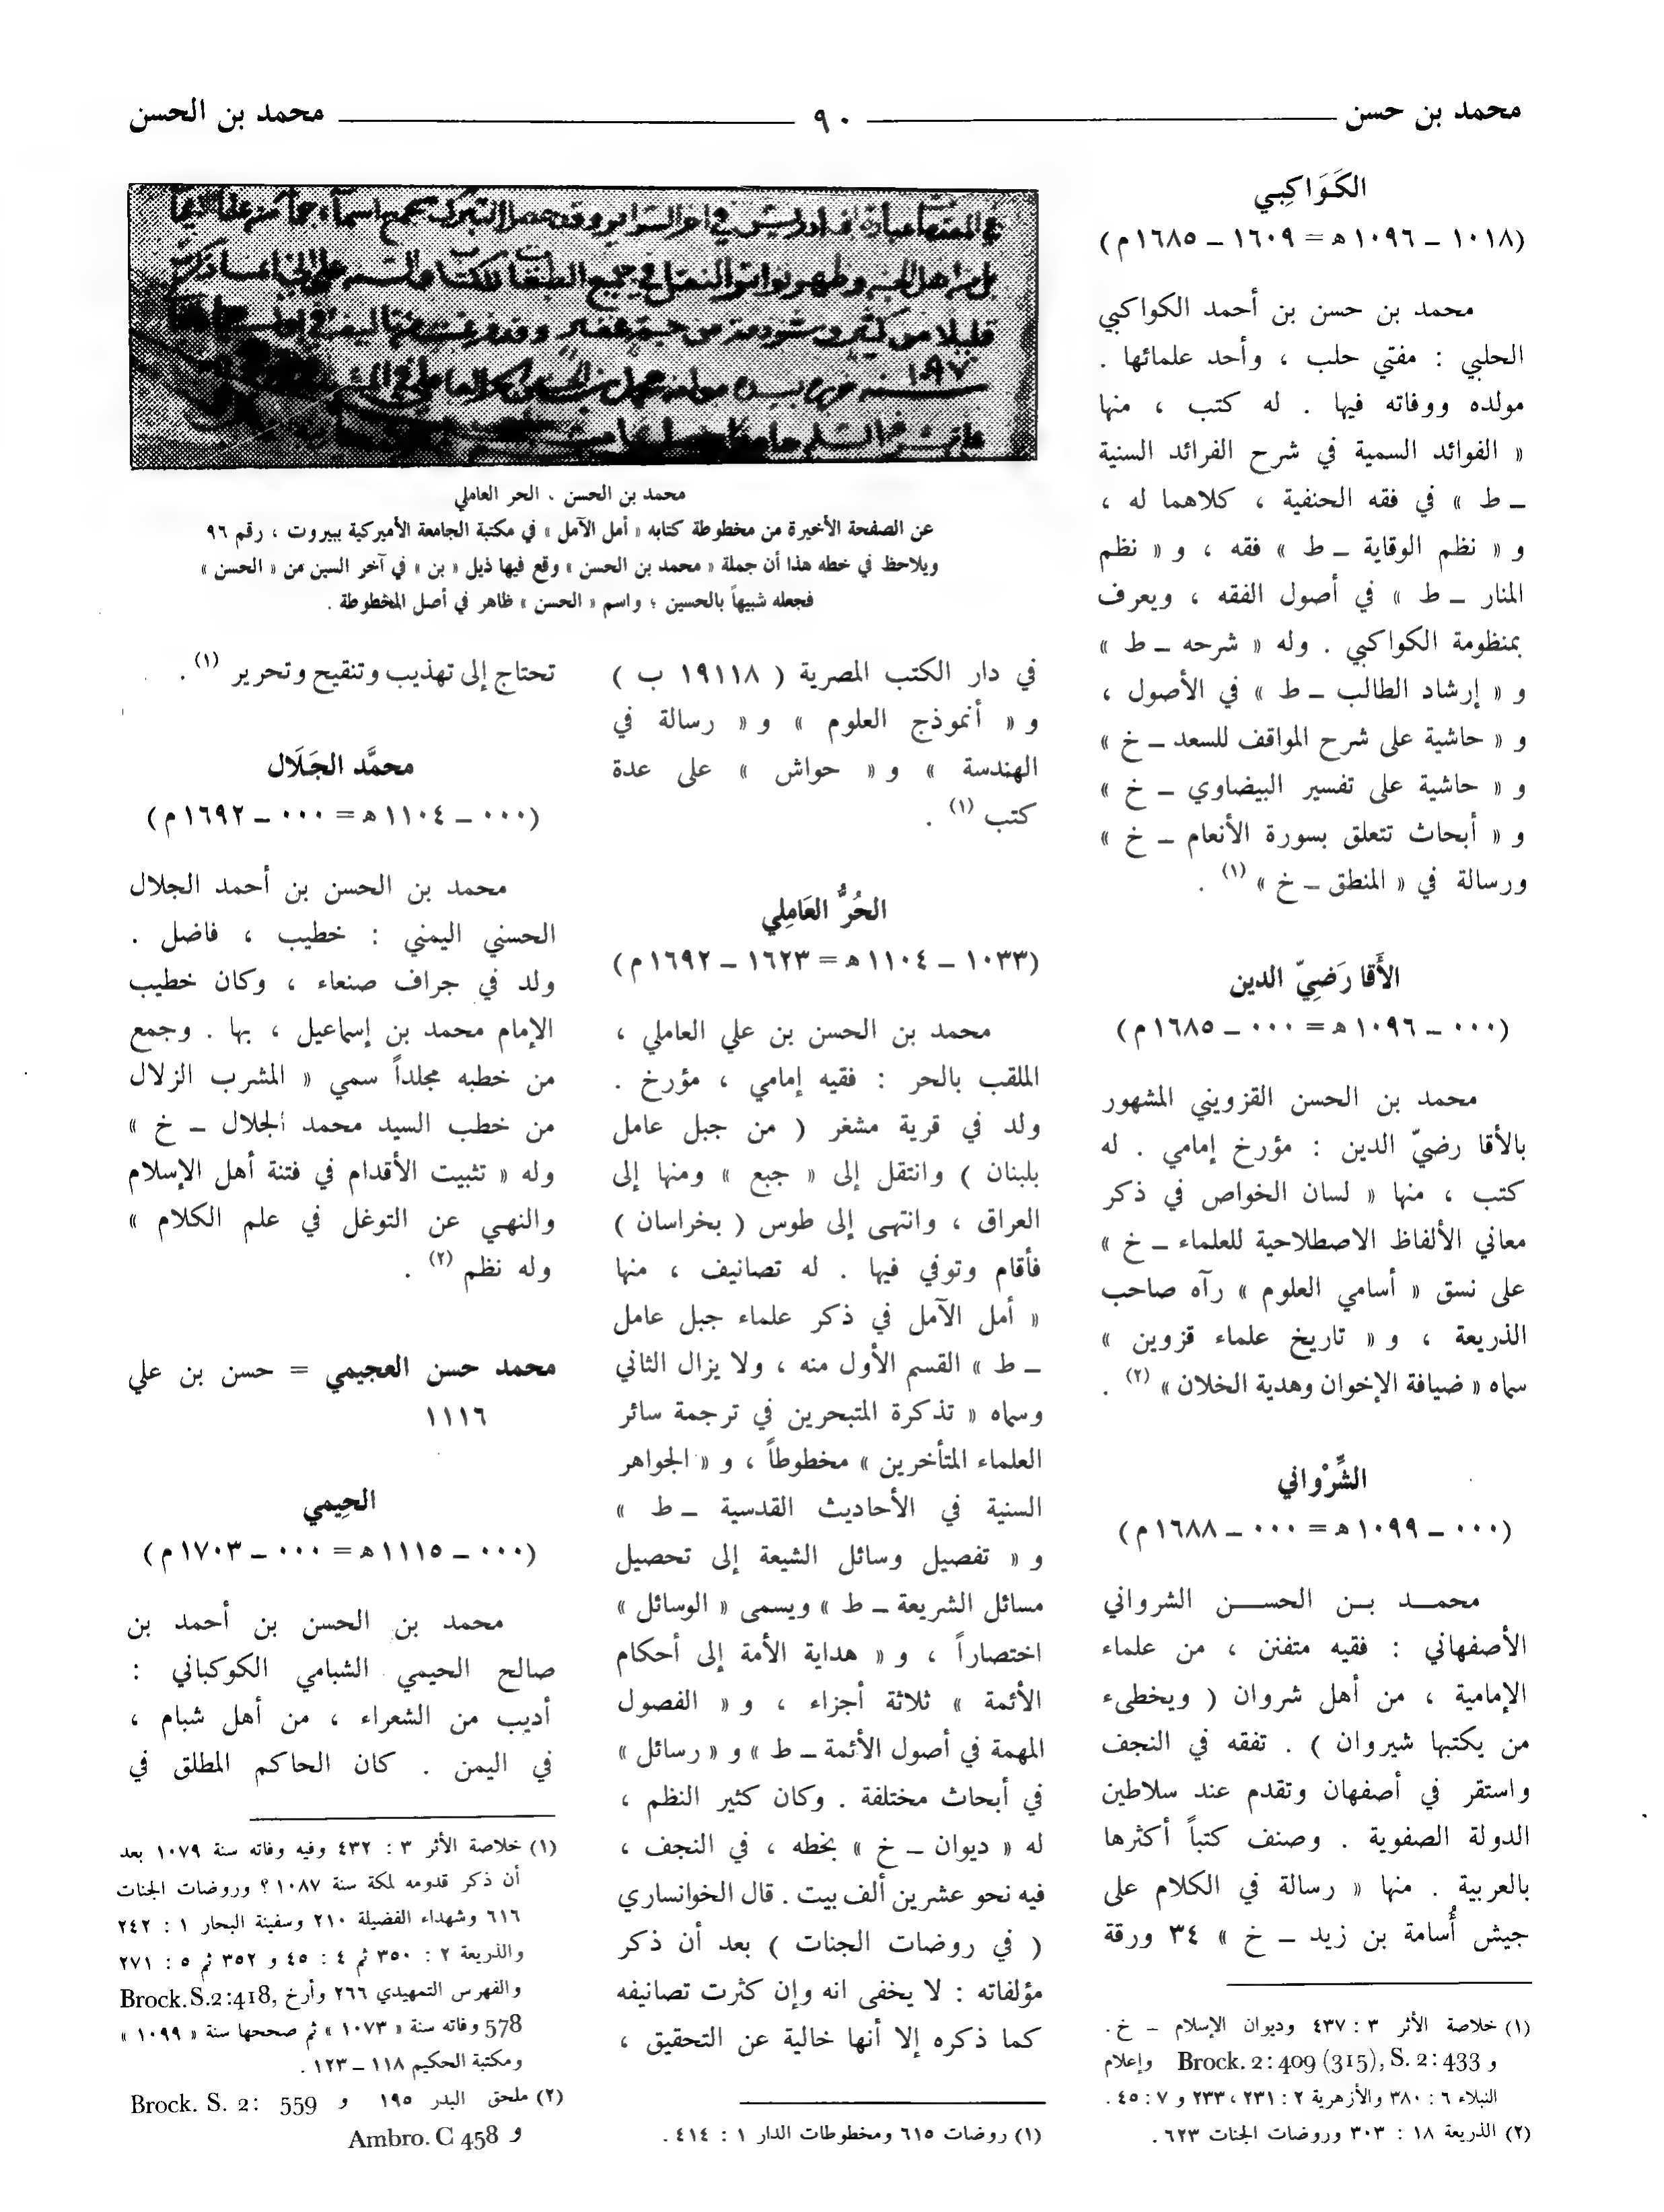 محمد بن حسن
٩٠
محمد بن الحسن
الكَوَاكِبي
(١٠١٨ ــ ١٠٩٦ ه = ١٦٠٩ ــ ١٦٨٥ م)
محمد بن حسن بن أحمد الكواكبي
الحلبي : مفتي حلب ، وأحد علمائها .
مولده ووفاته فيها . له كتب ، منها
« الفوائد السمية في شرح الفرائد السنية
ــ ط » في فقه الحنفية ، كلاهما له ،
و « نظم الوقاية ــ ط » فقه ، و « نظم
المنار ــ ط » في أصول الفقه ، ويعرف
بمنظومة الكواكبي . وله « شرحه ــ ط »
و « إرشاد الطالب ــ ط » في الأصول ،
و « حاشية على شرح المواقف للسعد ــ خ »
و « حاشية على تفسير البيضاوي ــ خ »
و « أبحاث تتعلق بسورة الأنعام ــ خ »
ورسالة في « المنطق ــ خ » (١) .
الأَقا رَضِيّ الدين
(٠٠٠ ــ ١٠٩٦ ه = ٠٠٠ ــ ١٦٨٥ م)
محمد بن الحسن القزويني المشهور
بالأقا رضيّ الدين : مؤرخ إمامي . له
كتب ، منها « لسان الخواص في ذكر
معاني الألفاظ الاصطلاحية للعلماء ــ خ »
على نسق « أسامي العلوم » رآه صاحب
الذريعة ، و « تاريخ علماء قزوين »
سماه « ضيافة الإخوان وهدية الخلان » (٢) .
الشِّرْواني
(٠٠٠ ــ ١٠٩٩ ه = ٠٠٠ ــ ١٦٨٨ م)
محمـــد بـــن الحســـن الشرواني
الأصفهاني : فقيه متفنن ، من علماء
الإمامية ، من أهل شروان ( ويخطىء
من يكتبها شيروان ) . تفقه في النجف
واستقر في أصفهان وتقدم عند سلاطين
الدولة الصفوية . وصنف كتباً أكثرها
بالعربية . منها « رسالة في الكلام على
جيش أُسامة بن زيد ــ خ » ٣٤ ورقة
(١) خلاصة الأثر ٣ : ٤٣٧ وديوان الإسلام ــ خ .
و Brock. 2: 409 (315), S. 2: 433 وإعلام
النبلاء ٦ : ٣٨٠ والأزهرية ٢ : ٢٣١ ، ٢٣٣ و ٧ : ٤٥ .
(٢) الذريعة ١٨ : ٣٠٣ وروضات الجنات ٦٢٣ .
١٠٩٧
محمد بن الحسن . الحر العاملي
عن الصفحة الأخيرة من مخطوطة كتابه « أمل الآمل » في مكتبة الجامعة الأميركية ببيروت ، رقم ٩٦
ويلاحظ في خطه هذا أن جملة « محمد بن الحسن » وقع فيها ذيل « بن » في آخر السين من « الحسن »
فجعله شبيهاً بالحسين ؛ واسم « الحسن » ظاهر في أصل المخطوطة .
في دار الكتب المصرية ( ١٩١١٨ ب )
و « أنموذج العلوم » و « رسالة في
الهندسة » و « حواش » على عدة
كتب (١) .
الحُرُّ العَامِلِي
(١٠٣٣ ــ ١١٠٤ ه = ١٦٢٣ ــ ١٦٩٢ م)
محمد بن الحسن بن علي العاملي ،
الملقب بالحر : فقيه إمامي ، مؤرخ .
ولد في قرية مشغر ( من جبل عامل
بلبنان ) وانتقل إلى « جبع » ومنها إلى
العراق ، وانتهى إلى طوس ( بخراسان )
فأقام وتوفي فيها . له تصانيف ، منها
« أمل الآمل في ذكر علماء جبل عامل
ــ ط » القسم الأول منه ، ولا يزال الثاني
وسماه « تذكرة المتبحرين في ترجمة سائر
العلماء المتأخرين » مخطوطاً ، و « الجواهر
السنية في الأحاديث القدسية ــ ط »
و « تفصيل وسائل الشيعة إلى تحصيل
مسائل الشريعة ــ ط » ويسمى « الوسائل »
اختصاراً ، و « هداية الأمة إلى أحكام
الأئمة » ثلاثة أجزاء ، و « الفصول
المهمة في أصول الأئمة ــ ط » و « رسائل »
في أبحاث مختلفة . وكان كثير النظم ،
له « ديوان ــ خ » بخطه ، في النجف ،
فيه نحو عشرين ألف بيت . قال الخوانساري
( في روضات الجنات ) بعد أن ذكر
مؤلفاته : لا يخفى انه وإن كثرت تصانيفه
كما ذكره إلا أنها خالية عن التحقيق ،
(١) روضات ٦١٥ ومخطوطات الدار ١ : ٤١٤ .
تحتاج إلى تهذيب وتنقيح وتحرير (١) .
محمَّد الجَلَال
(٠٠٠ ــ ١١٠٤ ه = ٠٠٠ ــ ١٦٩٢ م)
محمد بن الحسن بن أحمد الجلال
الحسني اليمني : خطيب ، فاضل .
ولد في جراف صنعاء ، وكان خطيب
الإمام محمد بن إسماعيل ، بها . وجمع
من خطبه مجلداً سمي « المشرب الزلال
من خطب السيد محمد الجلال ــ خ »
وله « تثبيت الأقدام في فتنة أهل الإسلام
والنهي عن التوغل في علم الكلام »
وله نظم (٢) .
محمد حسن العجيمي = حسن بن علي
١١١٦
الحِيمي
(٠٠٠ ــ ١١١٥ ه = ٠٠٠ ــ ١٧٠٣ م)
محمد بن الحسن بن أحمد بن
صالح الحيمي الشبامي الكوكباني :
أديب من الشعراء ، من أهل شبام ،
في اليمن . كان الحاكم المطلق في
(١) خلاصة الأثر ٣ : ٤٣٢ وفيه وفاته سنة ١٠٧٩ بعد
أن ذكر قدومه لمكة سنة ١٠٨٧ ؟ وروضات الجنات
٦١٦ وشهداء الفضيلة ٢١٠ وسفينة البحار ١ : ٢٤٢
والذريعة ٢ : ٣٥٠ ثم ٤ : ٤٥ و ٣٥٢ ثم ٥ : ٢٧١
والفهرس التمهيدي ٢٦٦ وأرخ Brock. S. 2: 418,
578 وفاته سنة « ١٠٧٣ » ثم صححها سنة « ١٠٩٩ »
ومكتبة الحكيم ١١٨ ــ ١٢٣ .
(٢) ملحق البدر ١٩٥ و Brock. S. 2: 559
و Ambro. C 458